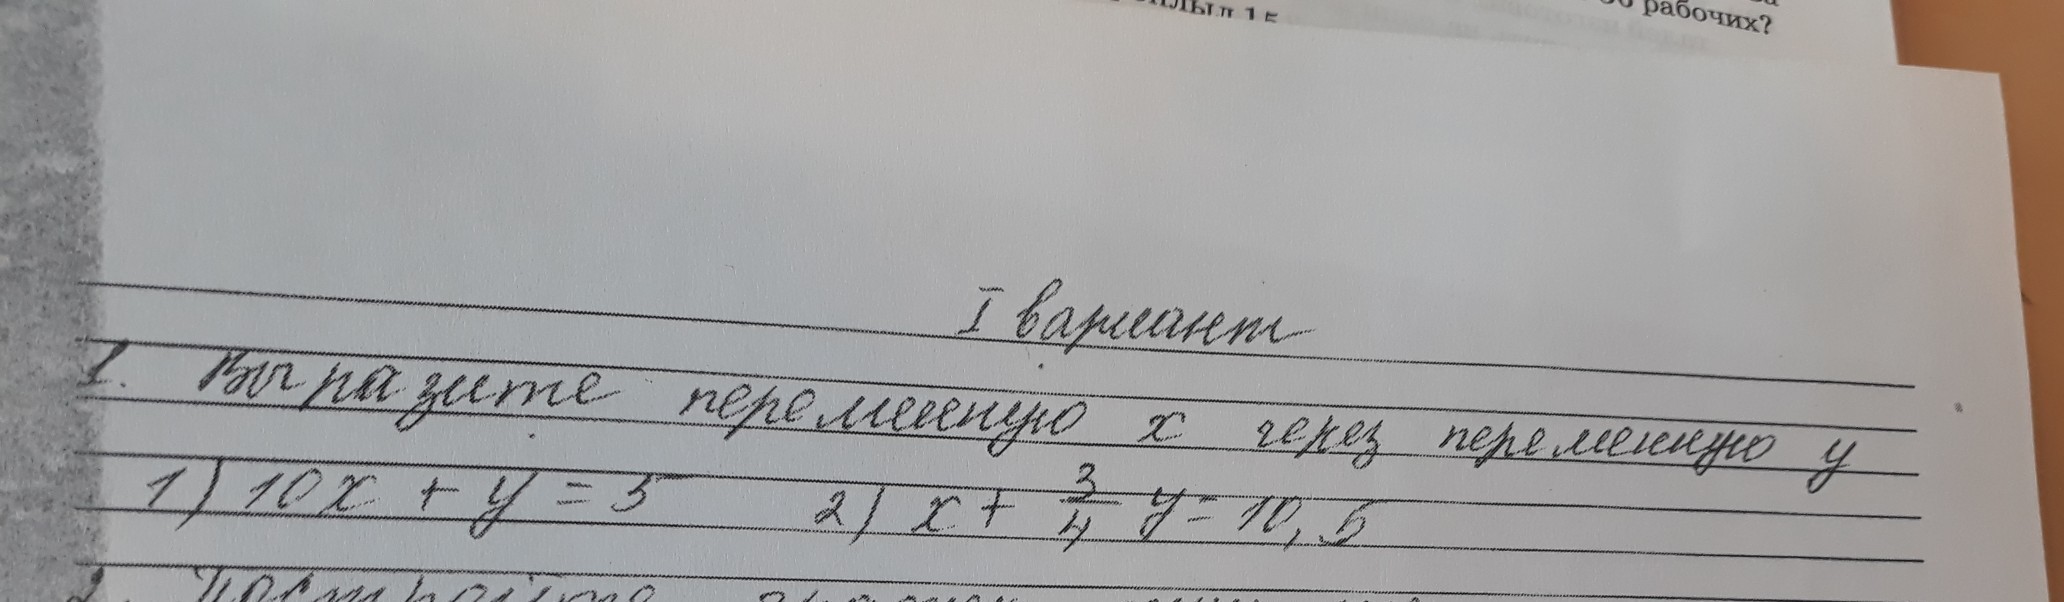 рабочих?
I вариант
1. Выразите переменную x через переменную y
1) 10x + y = 5 2) x + 3/4 y = 10,5
2. Постройте